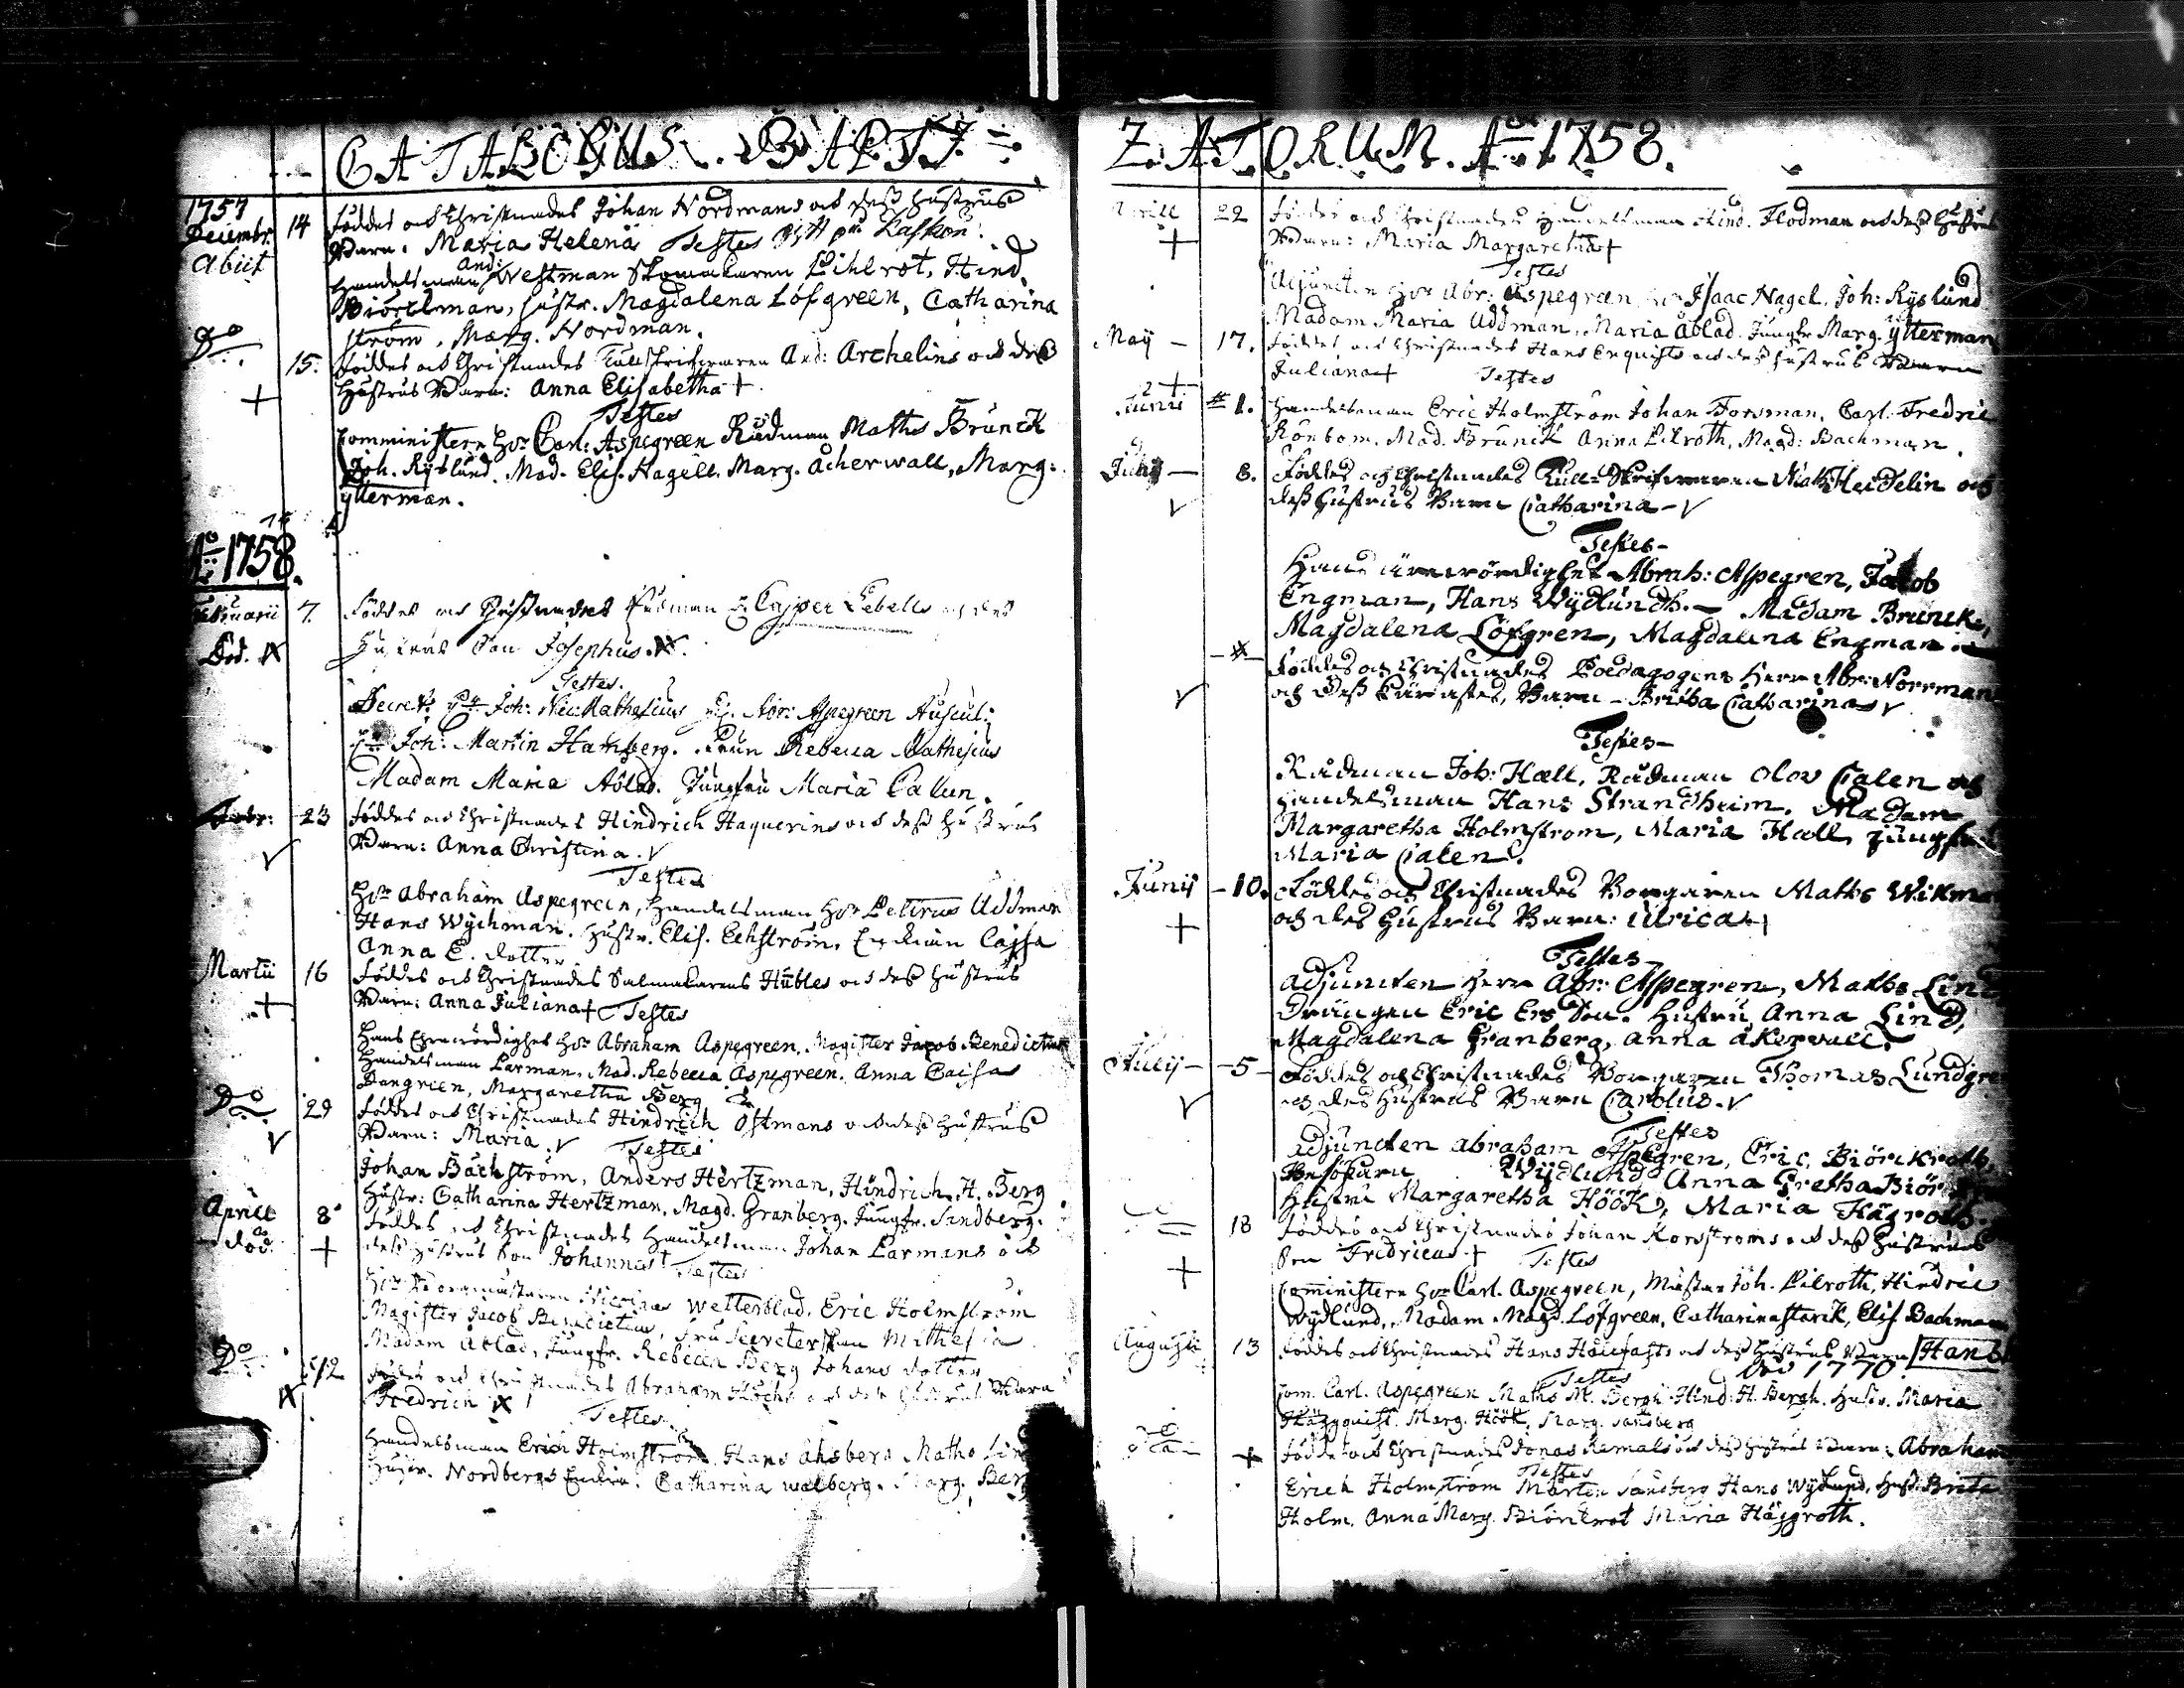 CATALOGUS BAPTI=
1757
Decembr. 14 föddes och Christnades Johan Nordmans och deß hustrus
abiit Barn: Maria Helena Testes
Handelsman And: Westman Skomakaren Lihlrot, Hind.
Biörckman, hustr. Magdalena Löfgreen, Catharina
ström, Marg. Nordman.
Do 15. föddes och Christnades Tullskrifwaren And: Archelins och deß
+ hustrus Barn: Anna Elisabetha +
Testes
Comministern Hr Carl: Aspegreen Rådman Maths Brunck
Joh. Ryslund. Mad. Elis. Hagell. Marg. Åcherwall, Marg:
Ytterman.
Ao 1758.
Februarii 7. föddes och Christnades Casper Lebells och deß
Död. hustrus Son Josephus.
Testes.
Secret: Hr Joh: Nic: Mathesius Abr: Aspegreen Auscul:
Hr Joh: Martin Hamberg. Rebecca Mathesius
Madam Maria Åblad. Jungfru Maria Calun.
Febr: 23 föddes och Christnades Hindrich Haquerins och deß hustrus
Barn: Anna Christina. √
Testes
Hr Abraham Aspegreen, Handelsman Hr Petrus Uddman
Hans Wychman. Hustr. Elis. Eckström, Enckian Cajsa
Anna E. dotter
Martii 16 föddes och Christnades Salmakarens Hübles och deß hustrus
+ Barn: Anna Juliana + Testes
Hans Ehrewördighet Hr Abraham Aspegreen, Magister Jacob Benedictius
Handelsman Larman, Mad. Rebecca Aspegreen. Anna Caisa
Dangreen, Margaretha Berg
Do 29 föddes och Christnades Hindrich Östmans och deß hustrus
√ Barn: Maria. √ Testes
Johan Bäckström, Anders Hertzman, Hindrich H. Berg
Hustr: Catharina Hertzman, Magd. Granberg. Jungfr. Sandberg.
Aprill 8 föddes och Christnades Handelsman Johan Larmans och
död. + deß hustrus Son Johannes + Testes
Hr Borgmästaren Nicolaus Wetterblad. Eric Holmström
Magister Jacob Benedictius, Fru Secreterskan Mathesia
Madam Åblad, Jungfr. Rebecca Berg Johans dotter
Do 12 föddes och Christnades Abraham och deß hustrus Barn
Fredrich
Testes
Handelsman Erich Holmström, Hans Ahsberg Maths
Hustr. Nordbergs Enckia. Catharina Walberg. Marg. Berg
ZATORUM. Ao 1758.
Aprill 22 föddes och Christnades Handelsman Hind. Flodman och deß hustrus
+ Barn: Maria Margaretha +
Testes
Adjuncten Hr Abr: Aspegreen, Isaac Nagel. Joh: Ryslund
Madam Maria Uddman, Maria Åblad. Jungfr Marg. Ytterman
May 17. föddes och Christnades Hans Enquists och deß hustrus Barn
+ Juliana + Testes
Junii 1. Handelsman Eric Holmström Johan Forsman, Carl Fredric
Rönbom. Mad. Brunck Anna Lilroth, Magd: Bachman.
8. Föddes och Christnades Tull-Skrifwaren Math: Heidelin och
√ deß hustrus Barn Catharina - √
Testes-
Hans ährewördighet Abrah: Aspegren, Jacob
Engman, Hans Wydlundh. - Madam Brunck,
Magdalena Löfgren, Magdalena Engman
Föddes och Christnades Poedagogens Herr Abr: Norrman
√ och deß Käraste, Barn - Britha Catharina √
Testes-
Rådman Joh: Hæll, Rådman Olov Calen och
Handelsman Hans Strandheim, Madam
Margaretha Holmström, Maria Hæll, Jungfru
Maria Calen.
Junij - 10. Föddes och Christnades Borgaren Maths Wikman
+ och des hustrus Barn: Ulrica +
Testes-
Adjuncten Herr Abr: Aspegren, Maths Lind
Drängen Eric Ers Son. Hustru Anna Lind,
Magdalena Granberg, Anna Åkerwall.
Julij - 5 - Föddes och Christnades Borgaren Thomas Lundgren
√ och des hustrus Barn Carolus. √
Testes
Adjuncten Abraham Aspegren, Eric Biörckroth,
Wijdlund Anna Gretha Biör
Hustru Margaretha Höök, Maria Hägroth.
18 föddes och Christnades Johan Korsströms och deß hustrus
+ Son Fredricus + Testes
Cominister Hr Carl. Aspegreen, Mäster Joh. Lilroth, Hindric
Wydlund, Madam Magd. Löfgreen, Catharina Starck, Elis. Bachman
Augusti 13 föddes och Christnades Hans Hållfasts och deß hustrus Barn Hans
död 1770
Testes
Com. Carl. Aspegreen Maths M. Bergh Hind: H. Bergh. Hustr. Maria
Häggquist. Marg. Höök, Marg. Sandberg
+ föddes och Christnades Jonas Remals och deß hustrus Barn: Abraham
Testes
Erich Holmström Mårten Sandberg Hans Wydlund, Hust. Brita
Holm. Anna Marg. Biörckrot Maria Häggroth.